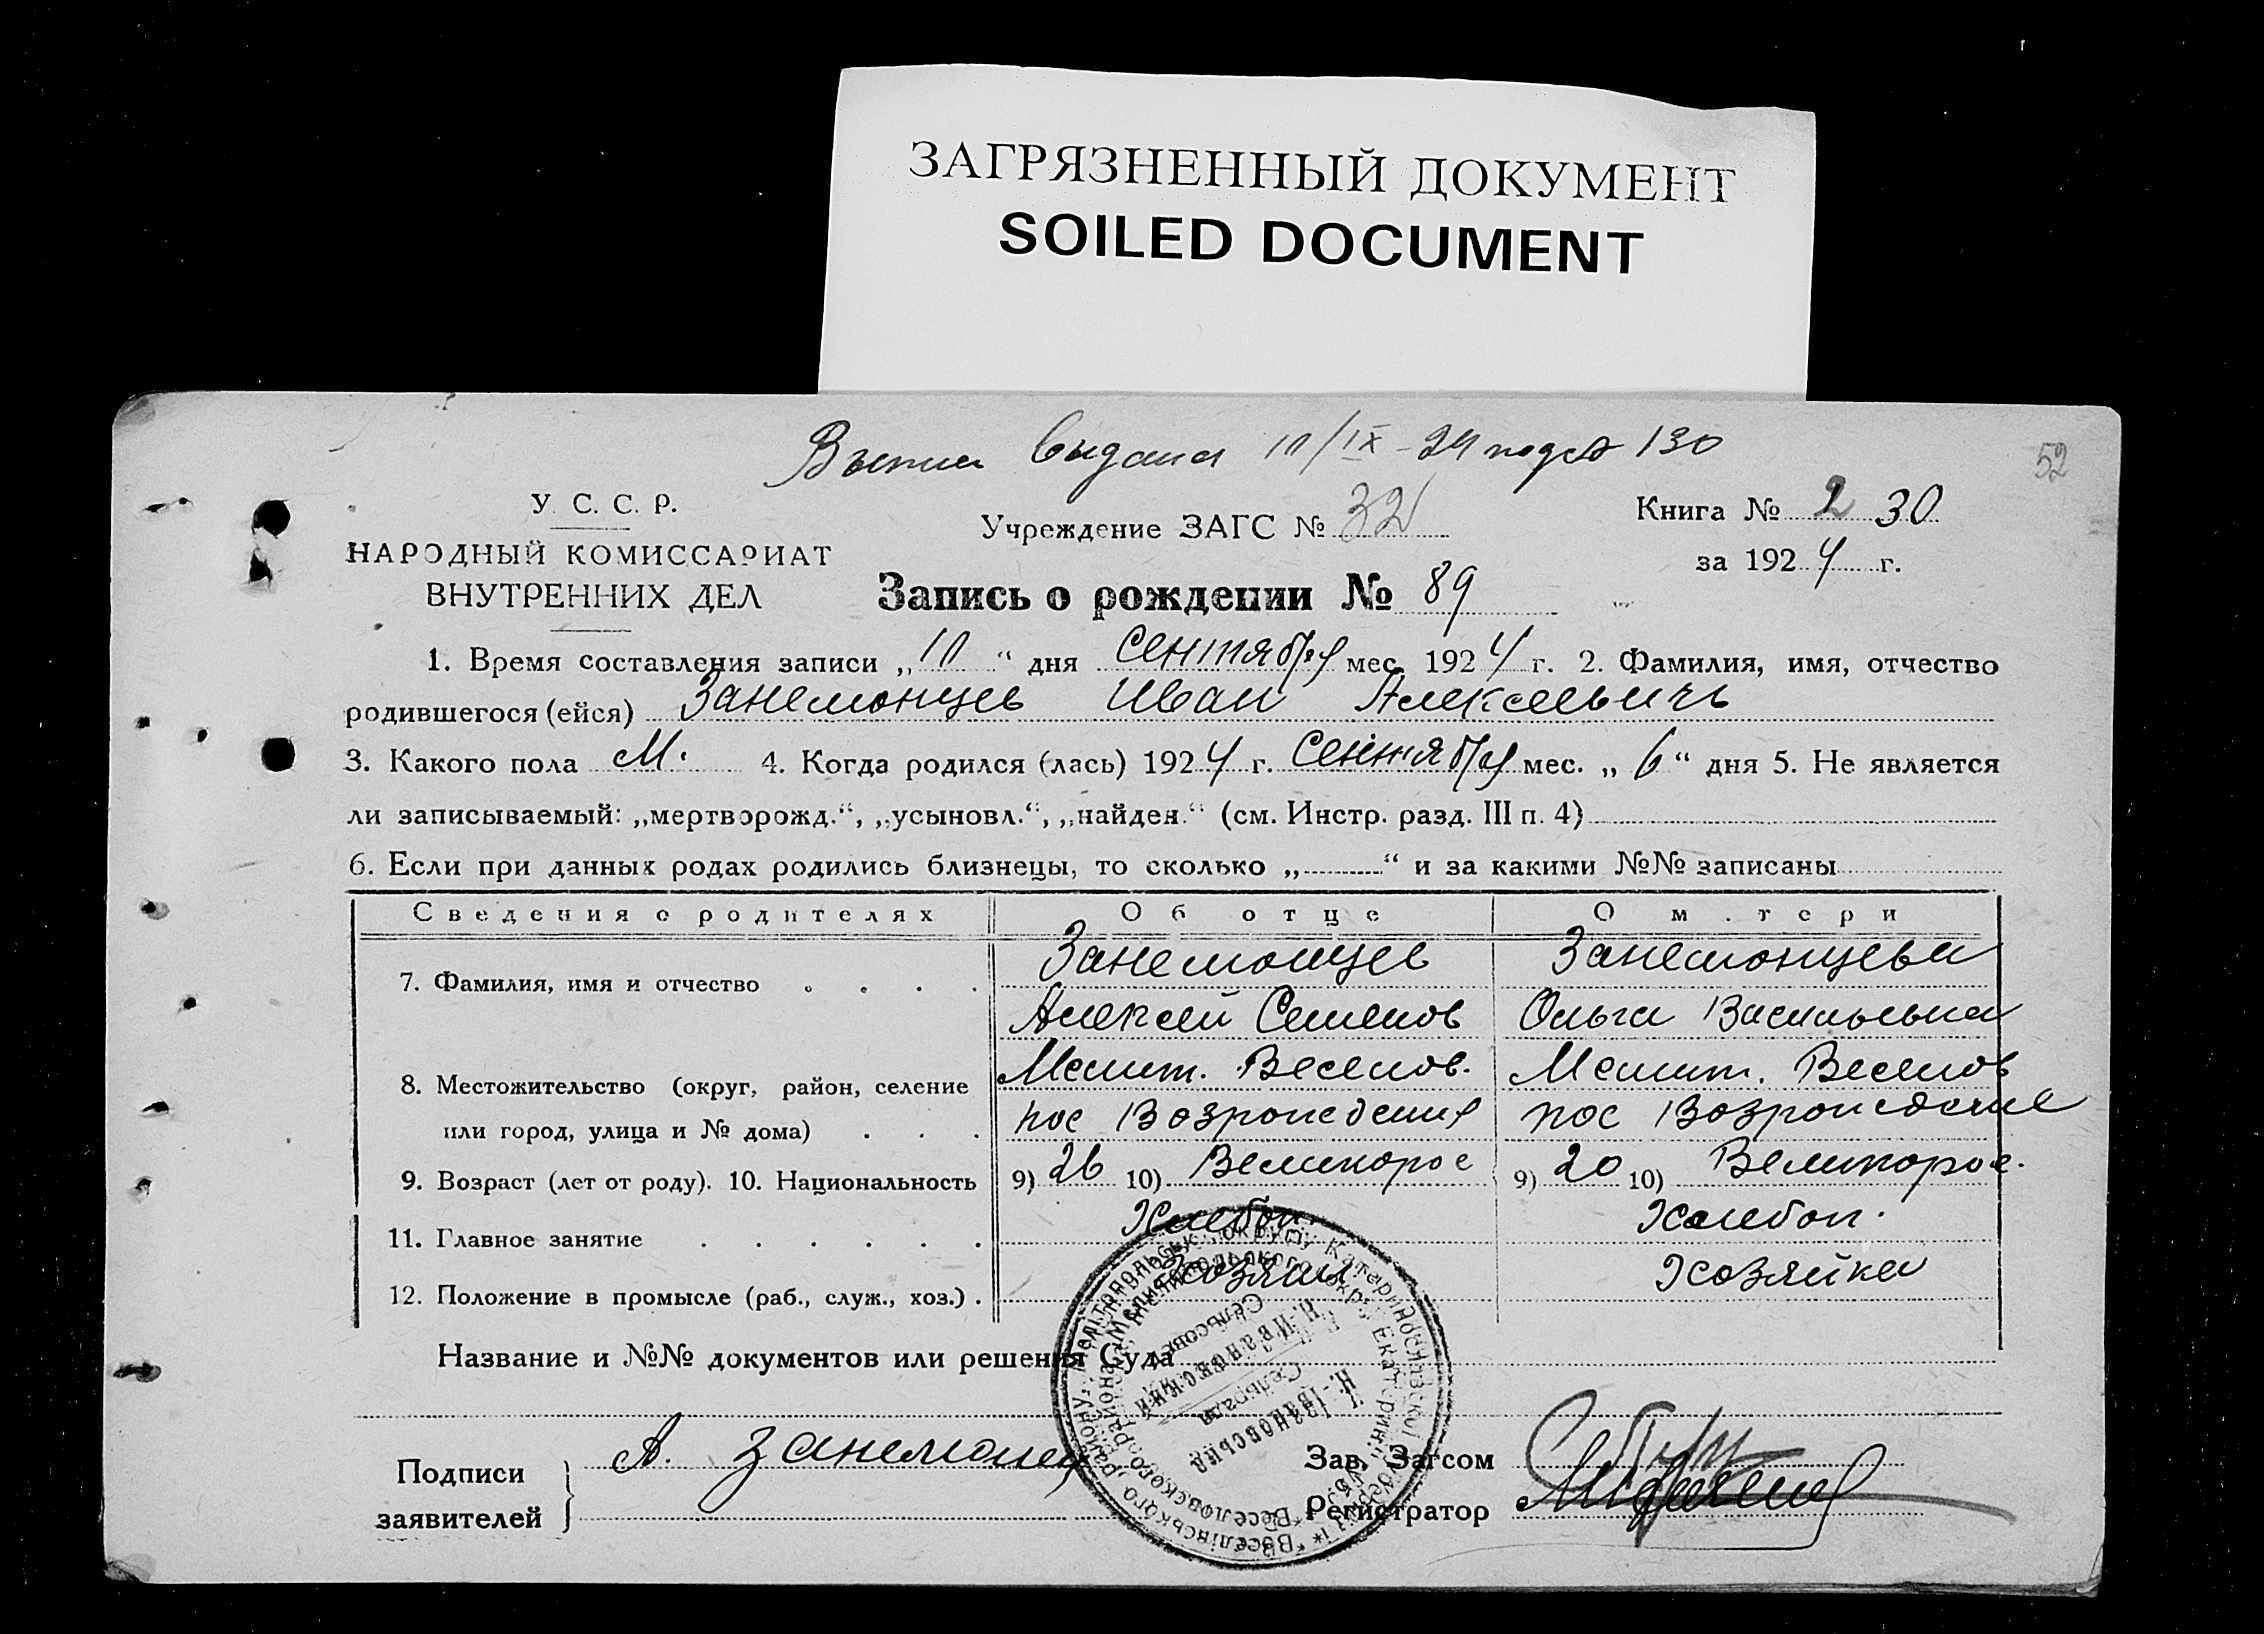 ЗАГРЯЗНЕННЫЙ ДОКУМЕНТ
SOILED DOCUMENT
выдана 10/IX-24 130
52
У. С. С. Р.
Учреждение ЗАГС № 32
Книга № 2 30
НАРОДНЫЙ КОМИССАРИАТ
ВНУТРЕННИХ ДЕЛ
за 1924 г.
Запись о рождении № 89
1. Время составления записи „10“ дня сентября мес. 1924 г. 2. Фамилия, имя, отчество
родившегося (ейся) Занемонцев Иван Алексеевичь
3. Какого пола М. 4. Когда родился (лась) 1924 г. Сентября мес. „6“ дня 5. Не является
ли записываемый: „мертворожд.“, „усыновл.“, „найден.“ (см. Инстр. разд. III п. 4)
6. Если при данных родах родились близнецы, то сколько „ “ и за какими №№ записаны
Сведения о родителях Об отце О м тери
7. Фамилия, имя и отчество Занемонцев Занемонцева
Алексей Семенов Ольга Васильевна
8. Местожительство (округ, район, селение Мелит. Веселов. Мелит. Веселов
или город, улица и № дома) пос Возрождения пос Возрождение
9. Возраст (лет от роду). 10. Национальность 9) 26 10) Великорос 9) 20 10) Великорос.
11. Главное занятие Хлебоп. Хлебоп.
12. Положение в промысле (раб., служ., хоз.) Хозяин Хозяйка
Название и №№ документов или решения Суда
Подписи
заявителей
А. Занемонец
Зав. Загсом
Регистратор
Н.-Ивановский
Сельсовет
Н.-Івановська
Сельрада